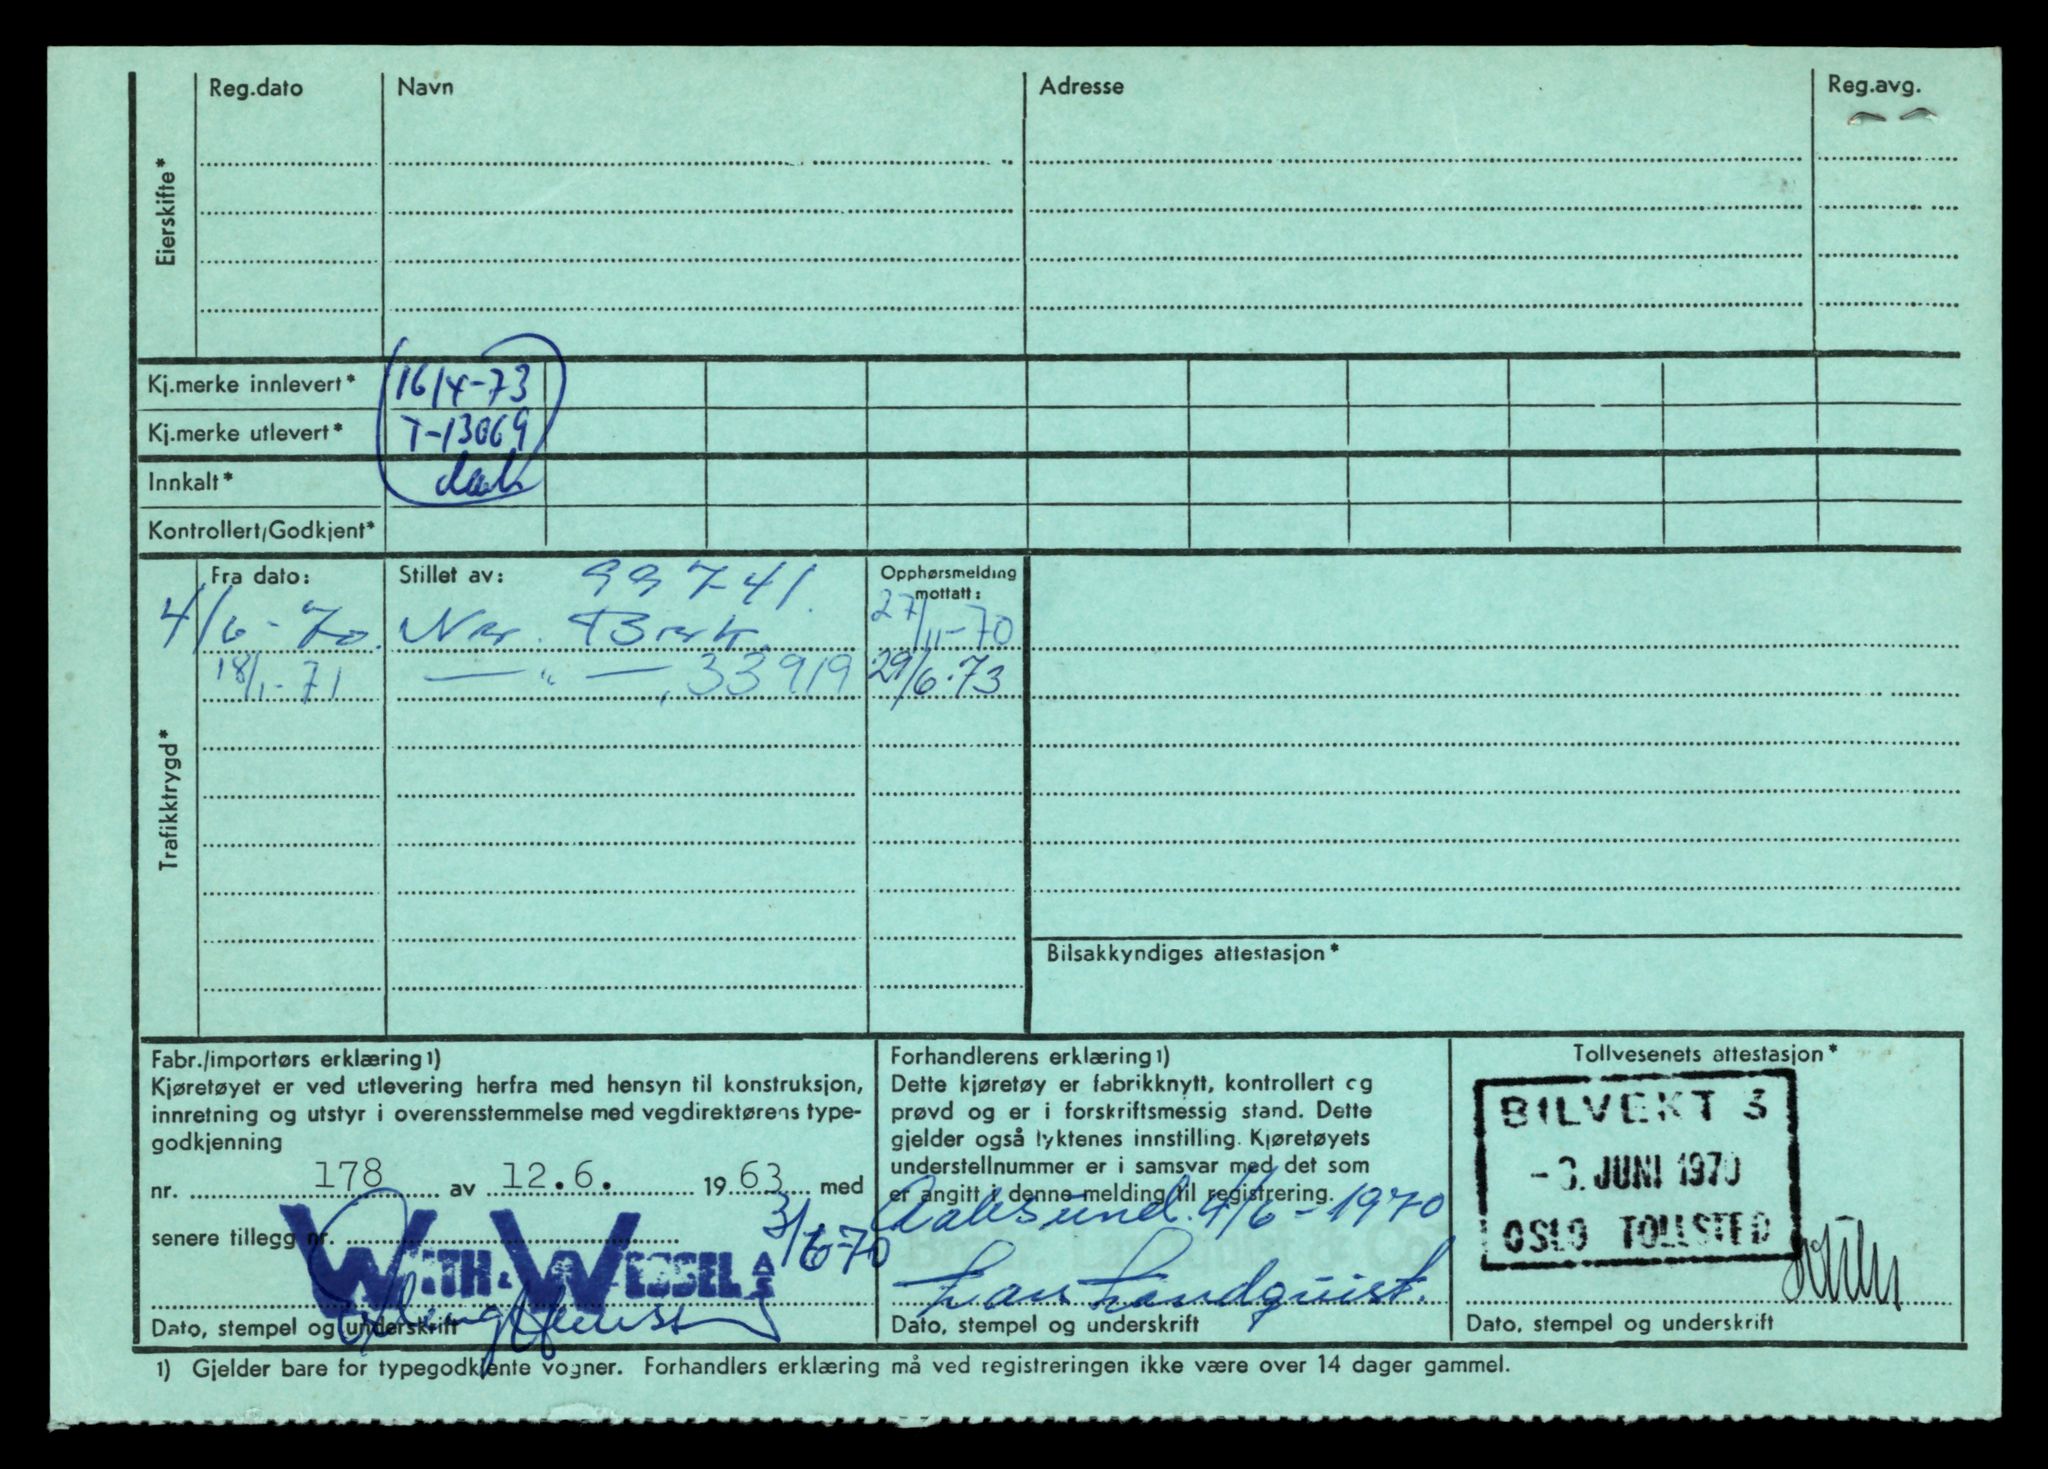 Reg.dato Navn Adresse Reg.avg.
Eierskifte*
Kj.merke innlevert* 16/4-73
Kj.merke utlevert* T-13069
Innkalt*
Kontrollert/Godkjent*
Trafikktrygd*
Fra dato: Stillet av: 99741. Opphørsmelding mottatt:
4/6-70. 27/11-70
18/1-71 — " — , 33919 29/6-73
Bilsakkyndiges attestasjon*
Fabr./importørs erklæring 1)
Kjøretøyet er ved utlevering herfra med hensyn til konstruksjon,
innretning og utstyr i overensstemmelse med vegdirektørens type-
godkjenning
nr. 178 av 12.6. 1963 med
senere tillegg nr.
3/6-70
WITH & WESSEL A/S
Dato, stempel og underskrift
Forhandlerens erklæring 1)
Dette kjøretøy er fabrikknytt, kontrollert og
prøvd og er i forskriftsmessig stand. Dette
gjelder også lyktenes innstilling. Kjøretøyets
understellnummer er i samsvar med det som
er angitt i denne melding til registrering.
Aalesund. 4/6-1970
Lars Landquist.
Dato, stempel og underskrift
Tollvesenets attestasjon*
BILVEKT 3
JUNI 1970
OSLO TOLLSTED
Dato, stempel og underskrift
1) Gjelder bare for typegodkjente vogner. Forhandlers erklæring må ved registreringen ikke være over 14 dager gammel.